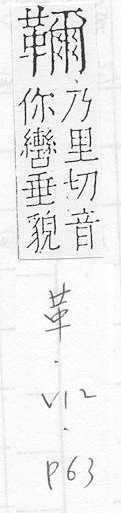 鞿
乃里切音
你轡垂貌
革
·
V12
·
P63